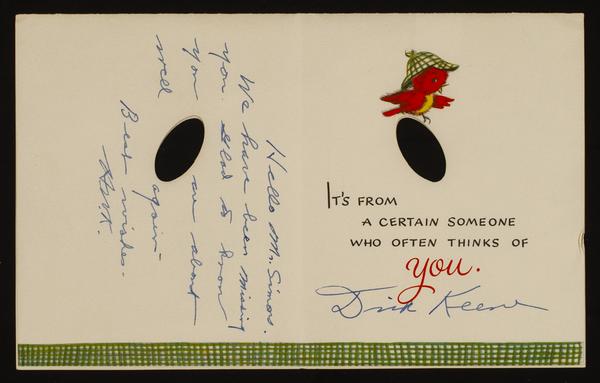 Hello Mr. Simons.
We have been missing
you. Glad to know
you are about
well again -
Best wishes -
H.W.K.
IT'S FROM
A CERTAIN SOMEONE
WHO OFTEN THINKS OF
you.
Dick Keene